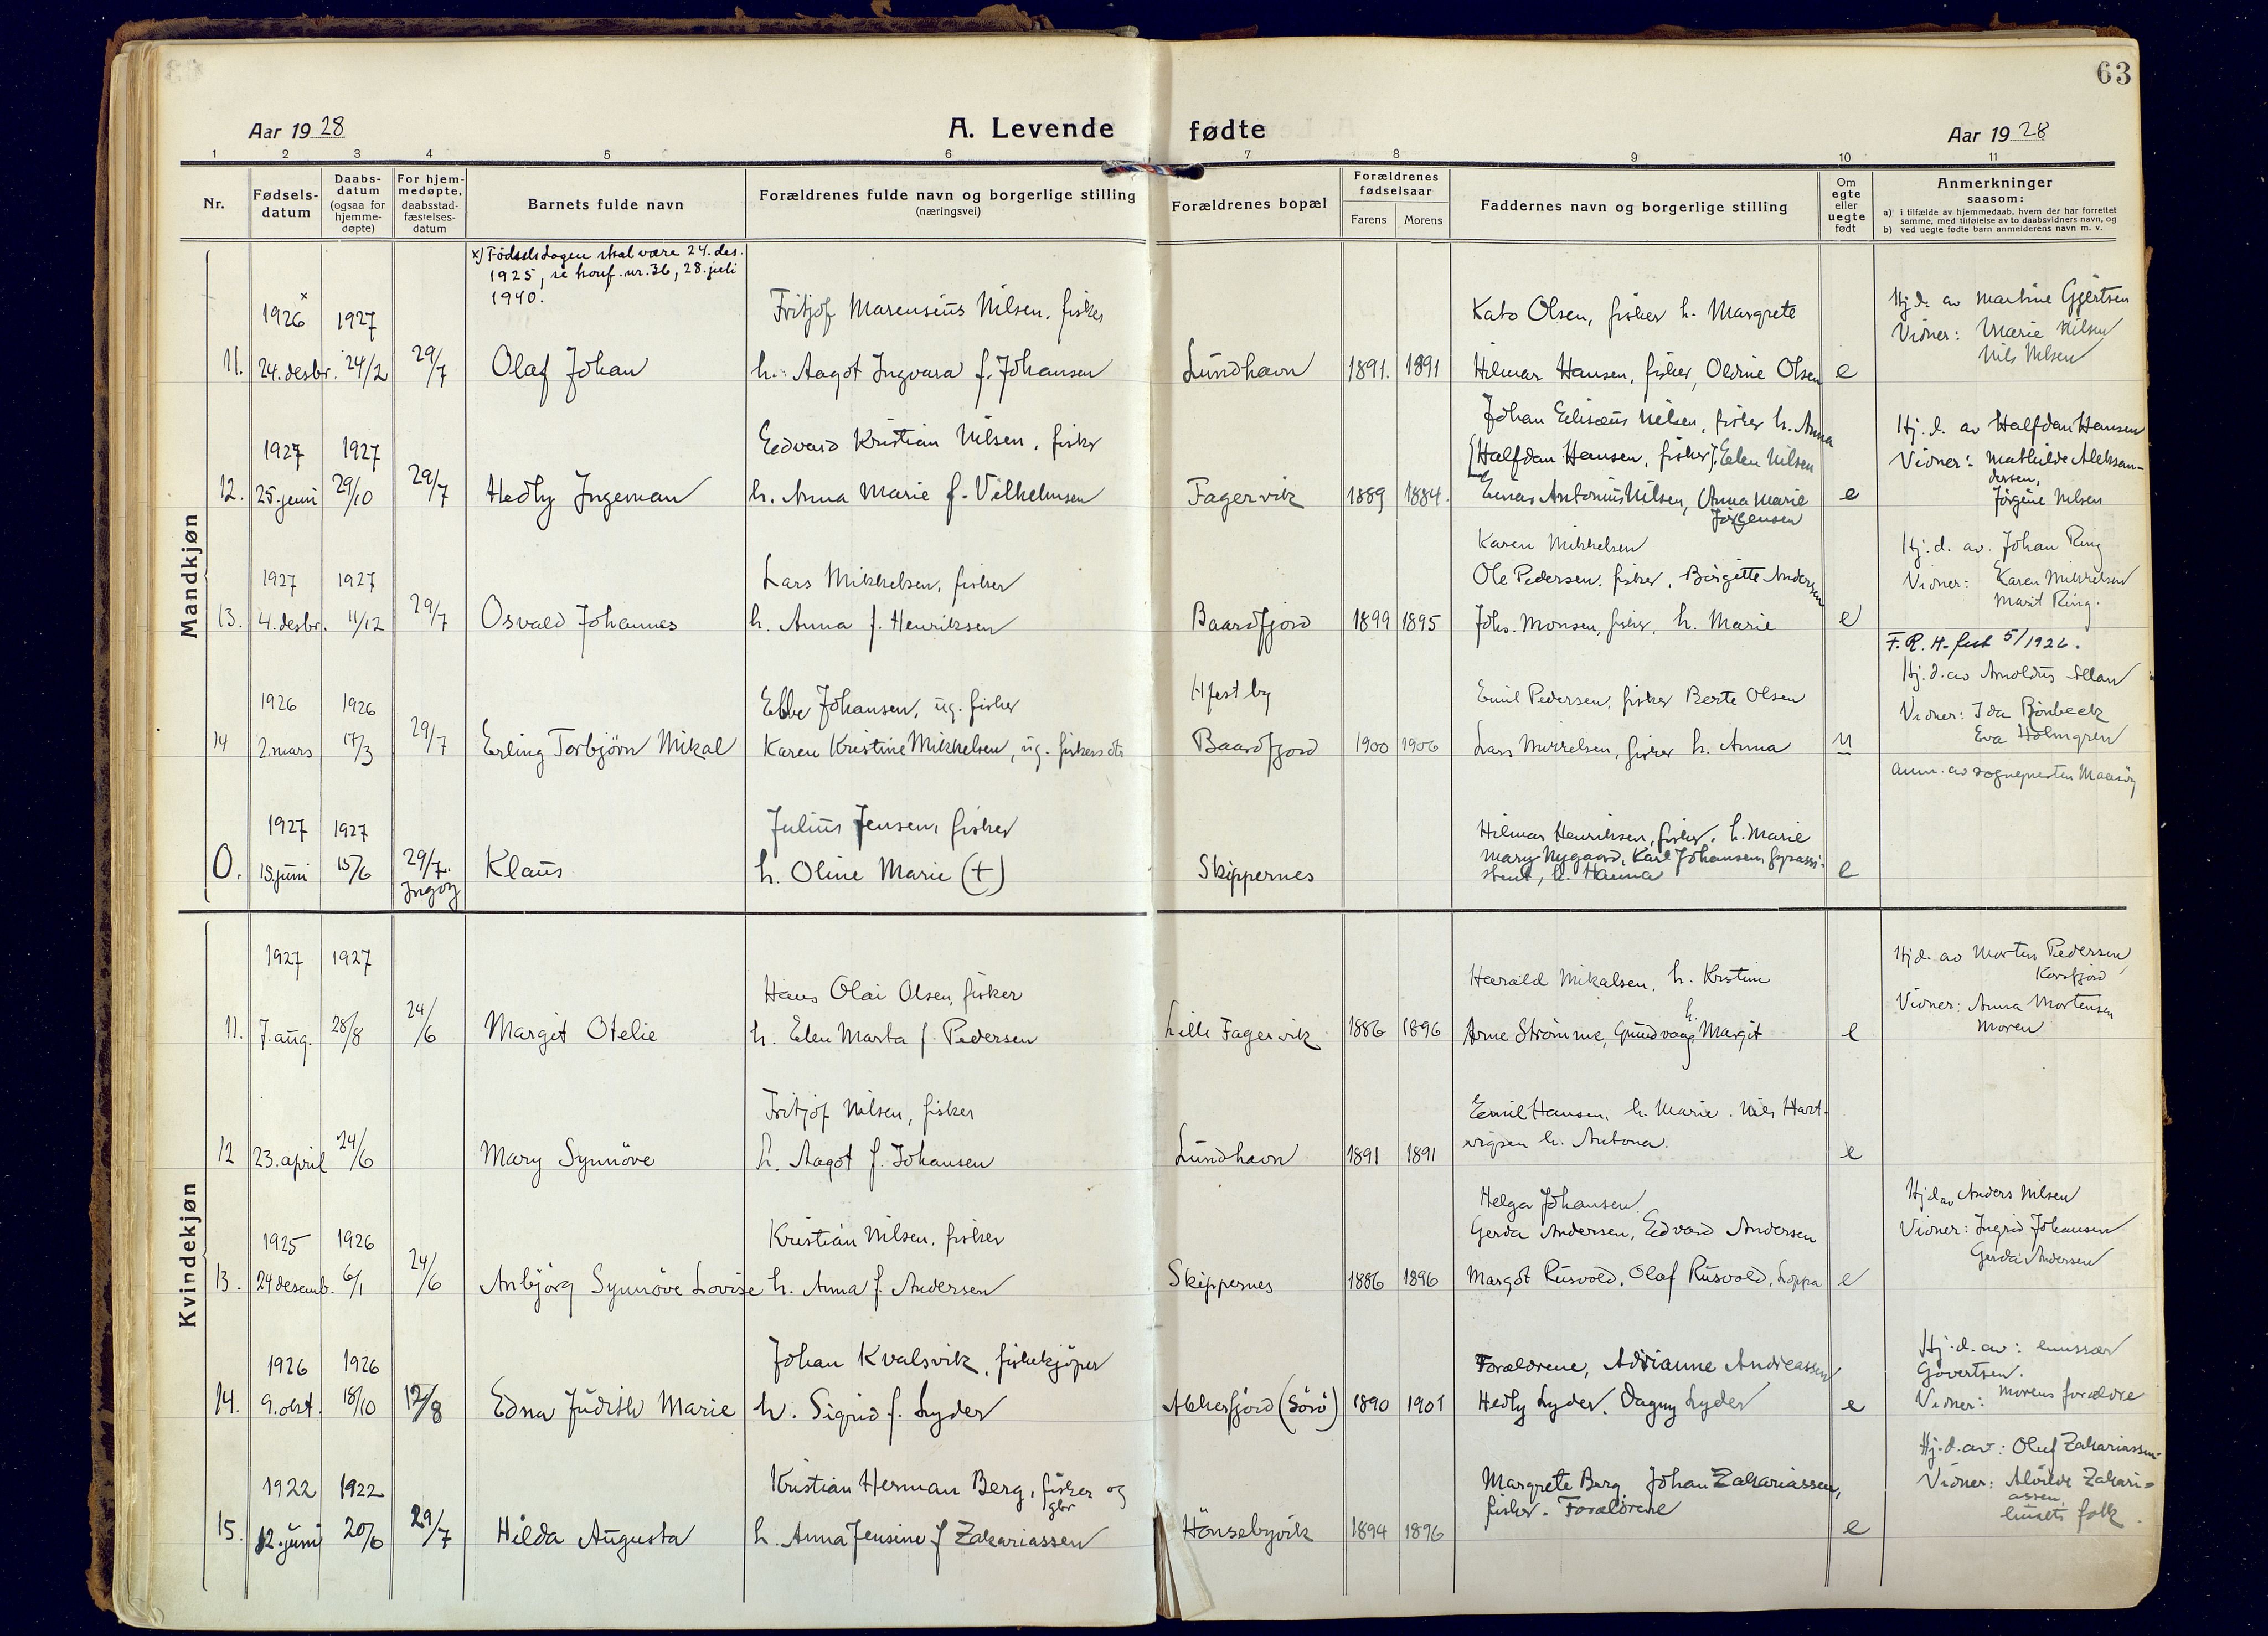 63
Aar 1928
A. Levende fødte
Aar 1928
1 2 3 4 5 6 7 8 9 10 11
Nr.
Fødsels-
datum
Daabs-
datum
(ogsaa for
hjemme-
døpte)
For hjem-
medøpte,
daabsstad-
fæstelses-
datum
Barnets fulde navn
Forældrenes fulde navn og borgerlige stilling
(næringsvei)
Forældrenes bopæl
Forældrenes
fødselsaar
Farens Morens
Faddernes navn og borgerlige stilling
Om
egte
eller
uegte
født
Anmerkninger
saasom:
a) i tilfælde av hjemmedaab, hvem der har forrettet
samme, med tilføielse av to daabsvidners navn, og
b) ved uegte fødte barn anmelderens navn m. v.
Mandkjøn
x) Fødselsdagen skal være 24. des.
1925, se konf. nr. 36, 28. juli
1940.
11.
1926 x
24. desbr.
1927
24/2
29/7
Olaf Johan
Fritjof Marensius Nilsen, fisker
h. Aagot Ingvara f. Johansen
Lundhavn
1891. 1891
Kato Olsen, fisker h. Margrete
Hilmar Hansen, fisker, Oldine Olsen
e
Hj. d. av Martine Gjertsen
Vidner: Marie Nilsen
Nils Nilsen
12.
1927
25. juni
1927
29/10
29/7
Hedly Ingeman
Edvard Kristian Nilsen, fisker
h. Anna Marie f. Vilhelmsen
Fagervik
1889 1884.
Johan Elisæus Nilsen, fisker h. Anna
Halfdan Hansen, fisker, Elen Nilsen
Einar Antonius Nilsen, Anna Marie
Jørgensen
e
Hj. d. av Halfdan Hansen
Vidner: Mathilde Aleksan-
dersen,
Jørgine Nilsen
13.
1927
4. desbr.
1927
11/12
29/7
Osvald Johannes
Lars Mikkelsen, fisker
h. Anna f. Henriksen
Baardfjord
1899 1895
Karen Mikkelsen
Ole Pedersen, fisker, Birgitte Andersen
Johs. Monsen, fisker, h. Marie
e
Hj. d. av. Johan Ring
Vidner: Karen Mikkelsen
Marit Ring.
14
1926
2. mars
1926
17/3
29/7
Erling Torbjørn Mikal
Ebbe Johansen, ug. fisker
Karen Kristine Mikkelsen, ug. fiskersdtr
Hfest by
Baardfjord
1900 1906
Emil Pedersen, fisker Berte Olsen
Lars Mikkelsen, fisker h. Anna
u
F. R. H. fest 5/1926.
Hj. d. av Arnoldus
Vidner: Ida Rønbeck
Eva Holmgren
anm. av sognepresten Maasøy
0.
1927
15. juni
1927
15/6
29/7.
Ingøy
Klaus
Julius Jensen, fisker
h. Oline Marie (+)
Skippernes
Hilmar Henriksen, fisker, h. Marie
Mary Nygaard, Karl Johansen, fyrassi-
stent, h. Hanna
e
Kvindekjøn
11.
1927
7. aug.
1927
28/8
24/6
Margit Otelie
Hans Olai Olsen, fisker
h. Elen Marta f. Pedersen
Lille Fagervik
1886 1896
Harald Mikalsen, h. Kristine
h.
Arne Strømme, Gundvaag Margit
e
Hjd. av Morten Pedersen
Korsfjord
Vidner: Anna Mortensen
Moren
12
23. april
24/6
Mary Synnöve
Fritjof Nilsen, fisker
h. Aagot f. Johansen
Lundhavn
1891 1891
Emil Hansen, h. Marie. Nils Hart-
vigsen h. Antona.
e
13.
1925
24 desemb.
1926
6/1
24/6
Anbjörg Synnöve Lovise
Kristian Nilsen, fisker
h. Anna f. Andersen
Skippernes
1886 1896
Helga Johansen
Gerda Andersen, Edvard Andersen
Margot Rusvold, Olaf Rusvold, Loppa
e
Hjd av Anders Nilsen
Vidner: Ingrid Johansen
Gerda Andersen
14.
1926
9. okt.
1926
18/10
12/8
Edna Judith Marie
Johan Kvalsvik, fiskekjøper
h. Sigrid f. Lyder
Akkerfjord (Sörö)
1890 1901
Forældrene, Adrianne Andreassen
Hedly Lyder, Dagny Lyder
e
Hj. d. av: emissær
Govertsen.
Vidner: Morens forældre
15.
1922
12. juni
1922
20/6
29/7
Hilda Augusta
Kristian Herman Berg, fisker og
gbr
h. Anna Jensine f Zakariassen
Hönsebyvik
1894 1896
Margrete Berg, Johan Zakariassen,
fisker. Forældrene
e
Hj. d. av: Oluf Zakariassen
Vidner: Alvilde Zakari-
assen,
husets folk.